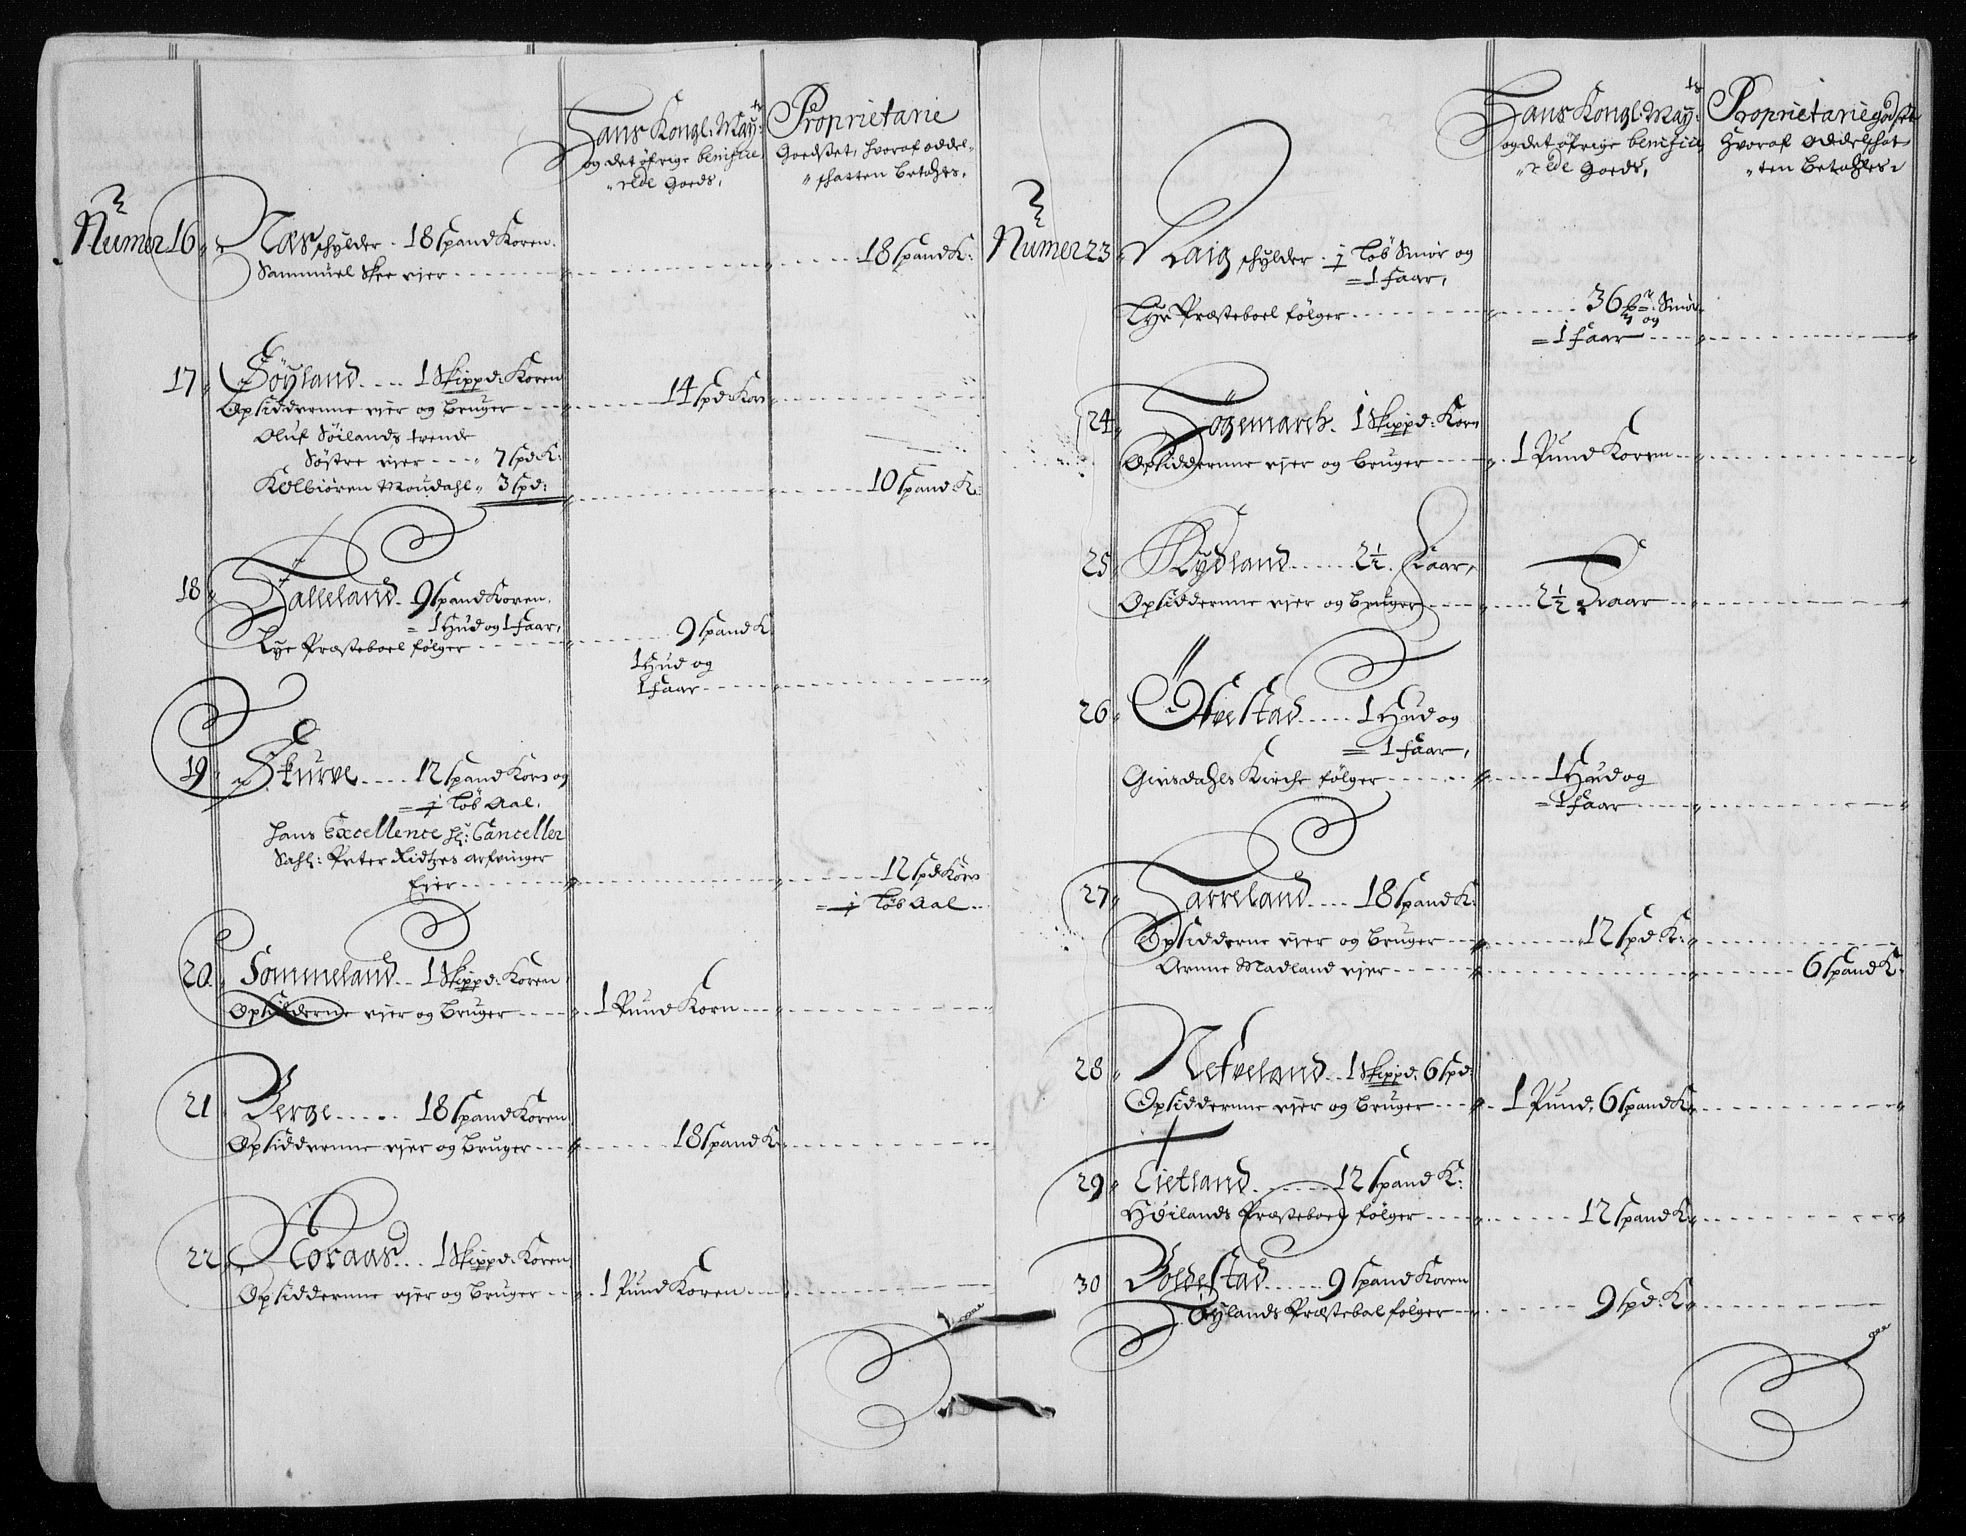 Hans Kongl: May:tz
og det öfrige benificie
"rede Goeds,
Proprietarie
Goedset, hvoraf oddel-
"skatten betahles,
Numer 16 Næs skylder. 18 Spand Koren.
Sammuel Skee eier
18 Spand K:
17 Söyland .... 1 Skippd: Koren
Opsiddernne eier og bruger
14 Spd: Korn
Oluf Söilands trende
Söstre eier 7 Spd K:
Kolbiören Moudahl 3 Spd:
10 Spand K:
18 Fälleland. 9 Spand Koren.
= 1 Hud og 1 faar,
Lye Præsteboel fölger
9 Spand K
1 Hud og
1 faar
19 Skurve .... 12 Spand Korn og
= ½ löb Aal.
hans Excellence H: Canceller
Sahl: Peter Ridtzes arfvinger
Eier
12 Spd Korn
= ½ löb Aal
20. Sommeland .. 1 Skippd: Koren
Opsidderne eier og bruger
1 Pund Korn
21 Berge ..... 18 Spand Koren
Opsiddernne eier og bruger
18 Spand K:
22 Aaraas ... 1 Skippd: Koren
Opsiddernne eier og bruger
1 Pund Koren
Hans Kongl: May:tz
og det öfrige benificie
"rede Goeds,
Proprietarie godset
Hvoraf oddelskat
"ten betahles
Numer 23 skylder. ½ löb Smör og
= 1 faar,
Lye Præsteboel fölger
36 Smör
og
= 1 faar
24 Högemarch. 1 Skippd: Korn
Opsiddernne eier og bruger
1 Pund Koren
25 Rydland ...... 2½. faar,
Opsiddernne eier og bruger
2½ Faar
26 Ofvestad ..... 1 Hud og
= 1 faar,
Giesdahls Kirche fölger
1 Hud og
= 1 faar
27 Tarreland .... 18 Spand K:
Opsidderne eier og bruger
12 Spd K:
Arnne Madland eier
6 Spand K
28 Nefveland .. 1 Skippd: 6 Spd:
Opsiddernne eier og bruger
1 Pund, 6 Spand K
29 Tietland ...... 12 Spand K:
Höilands Præsteboel fölger
12 Spand K
30 Boldestad ..... 9 Spand Koren
Höylands Præstebol fölger
9 Spd: K